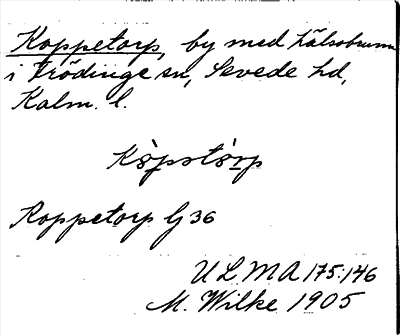 Koppetorp, by med hälsobrunn
i Frödinge sn, Sevede hd,
Kalm. l.
Köpstörp
Roppetorp Gj 36
ULMA 175:146
M. Wilke 1905